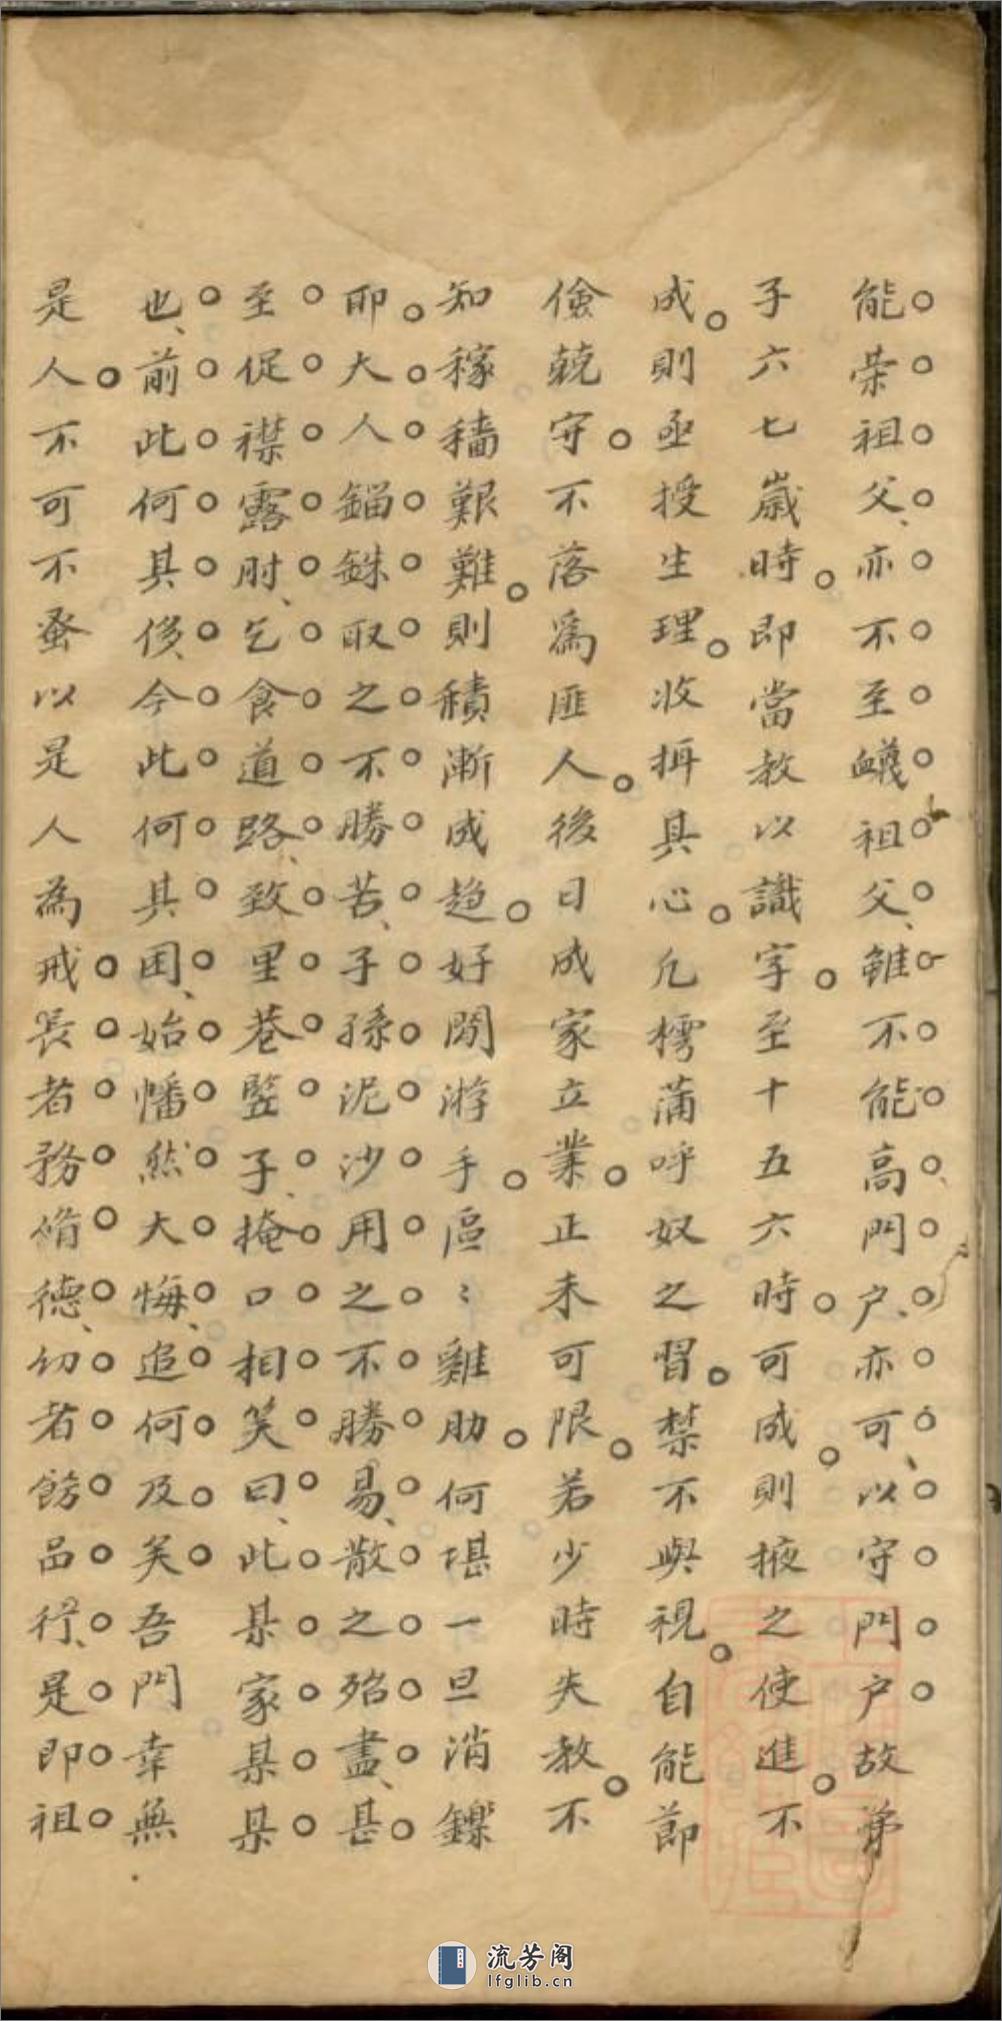 能荣祖父亦不至衊祖父雖不能高門户亦可以守門户故弟
子六七歲時即當教以識字至十五六時可成則掖之使進不
成則亟授生理收拇其心凢樗蒲呼奴之習禁不與視自能節
儉兢守不落為匪人後日成家立業正未可限若少時失教不
知稼穡艱難則積漸成趋好閒游手區〻雞肋何堪一旦消鑠
耶大人錙銖取之不勝苦子孫泥沙用之不勝易散之殆盡甚
至促襟露肘乞食道路致里巷豎子掩口相笑曰此某家某某
也前此何其侈今此何其困始幡然大悔追何及矣吾門幸無
是人不可不蚤以是人為戒長者務脩德幼者飭品行是即祖
流芳阁
lfglib.cn